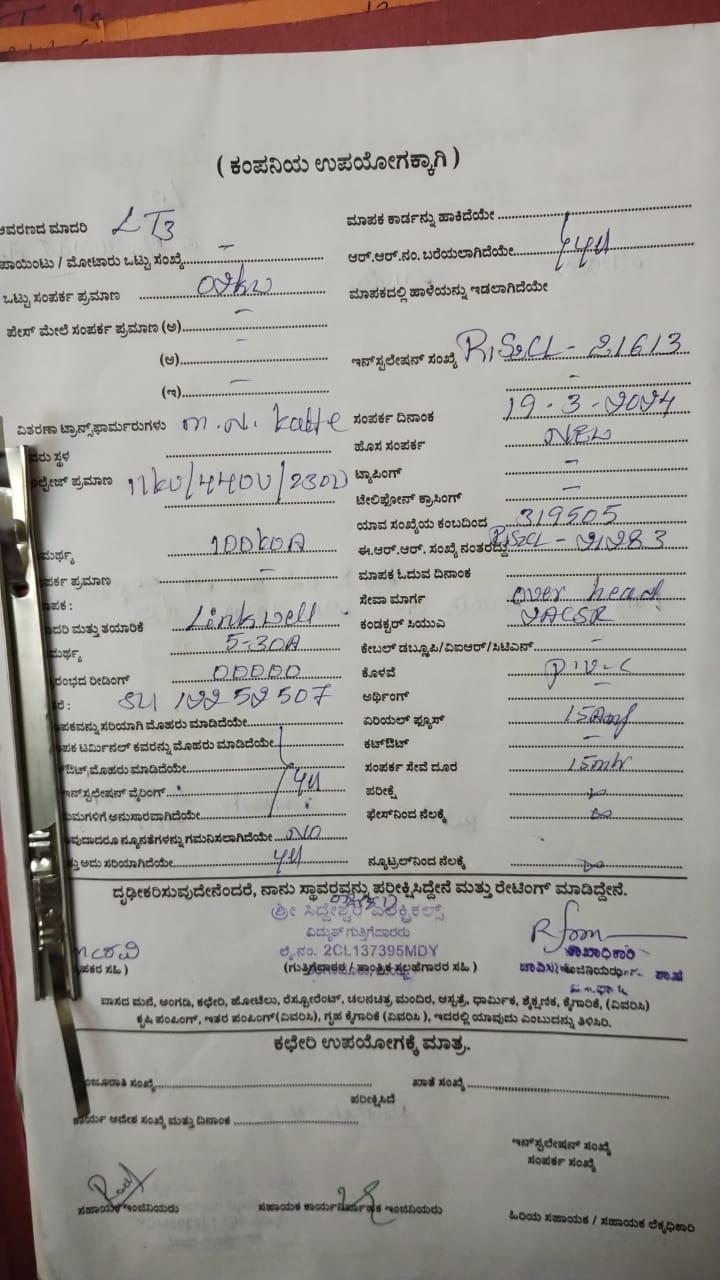 ( ಕಂಪನಿಯ ಉಪಯೋಗಕ್ಕಾಗಿ )
ಆವರಣದ ಮಾದರಿ LT3 ಮಾಪಕ ಕಾರ್ಡನ್ನು ಹಾಕಿದೆಯೇ
ಪಾಯಿಂಟು / ಮೋಟಾರು ಒಟ್ಟು ಸಂಖ್ಯೆ - ಆರ್.ಆರ್.ನಂ. ಬರೆಯಲಾಗಿದೆಯೇ
ಒಟ್ಟು ಸಂಪರ್ಕ ಪ್ರಮಾಣ 02kw ಮಾಪಕದಲ್ಲಿ ಹಾಳೆಯನ್ನು ಇಡಲಾಗಿದೆಯೇ
ಪೇಸ್ ಮೇಲೆ ಸಂಪರ್ಕ ಪ್ರಮಾಣ (ಅ) -
(ಆ) - ಇನ್‌ಸ್ಟಲೇಷನ್ ಸಂಖ್ಯೆ R1S2CL - 21613
(ಇ) - -
ವಿತರಣಾ ಟ್ರಾನ್ಸ್‌ಫಾರ್ಮರುಗಳು M.N. Katte ಸಂಪರ್ಕ ದಿನಾಂಕ 19-3-2024
ವರು ಸ್ಥಳ ಹೊಸ ಸಂಪರ್ಕ NEW
ಲ್ಟೇಜ್ ಪ್ರಮಾಣ 11kV/440V/230V ಟ್ಯಾಪಿಂಗ್ -
ಟೆಲಿಫೋನ್ ಕ್ರಾಸಿಂಗ್ -
ಯಾವ ಸಂಖ್ಯೆಯ ಕಂಬದಿಂದ 319505
ಮರ್ಥ್ಯ 100kVA ಈ.ಆರ್.ಆರ್. ಸಂಖ್ಯೆ ನಂತರದ್ದು R1S2CL - 21283
ಪರ್ಕ ಪ್ರಮಾಣ - ಮಾಪಕ ಓದುವ ದಿನಾಂಕ
ಾಪಕ : ಸೇವಾ ಮಾರ್ಗ over head
ಾದರಿ ಮತ್ತು ತಯಾರಿಕೆ Linkwell ಕಂಡಕ್ಟರ್ ಸಿಯುಎ
ಮರ್ಥ್ಯ 5-30A ಕೇಬಲ್ ಡಬ್ಲ್ಯೂಪಿ/ವಿಐಆರ್/ಸಿಟಿಎನ್ -
ರಂಭದ ರೀಡಿಂಗ್ 00000 ಕೊಳವೆ P.V.C
ರೆ : 12252507 ಅರ್ಥಿಂಗ್ -
ಪಕವನ್ನು ಸರಿಯಾಗಿ ಮೊಹರು ಮಾಡಿದೆಯೇ ಏರಿಯಲ್ ಫ್ಯೂಸ್ 15Amp
ಪಕ ಟರ್ಮಿನಲ್ ಕವರನ್ನು ಮೊಹರು ಮಾಡಿದೆಯೇ ಕಟ್‌ಔಟ್ -
ಔಟ್ ಮೊಹರು ಮಾಡಿದೆಯೇ ಸಂಪರ್ಕ ಸೇವೆ ದೂರ 15mtr
ಇನ್‌ಸ್ಟಲೇಷನ್ ವೈರಿಂಗ್ ಪರೀಕ್ಷೆ
ಯಮಗಳಿಗೆ ಅನುಸಾರವಾಗಿದೆಯೇ ಫೇಸ್‌ನಿಂದ ನೆಲಕ್ಕೆ
ವುದಾದರೂ ನ್ಯೂನತೆಗಳನ್ನು ಗಮನಿಸಲಾಗಿದೆಯೇ NO
ತ್ತು ಅದು ಸರಿಯಾಗಿದೆಯೇ ನ್ಯೂಟ್ರಲ್‌ನಿಂದ ನೆಲಕ್ಕೆ
ದೃಢೀಕರಿಸುವುದೇನೆಂದರೆ, ನಾನು ಸ್ಥಾವರವನ್ನು ಪರೀಕ್ಷಿಸಿದ್ದೇನೆ ಮತ್ತು ರೇಟಿಂಗ್ ಮಾಡಿದ್ದೇನೆ.
ಶ್ರೀ ಸಿದ್ದೇಶ್ವರ ಎಲೆಕ್ಟ್ರಿಕಲ್ಸ್
ವಿದ್ಯುತ್ ಗುತ್ತಿಗೆದಾರರು
ಲೈ.ನಂ. 2CL137395MDY ಶಾಖಾಧಿಕಾರಿ
ಪಕರ ಸಹಿ ) (ಗುತ್ತಿಗೆದಾರರ / ತಾಂತ್ರಿಕ ಸಲಹೆಗಾರರ ಸಹಿ )
ವಾಸದ ಮನೆ, ಅಂಗಡಿ, ಕಛೇರಿ, ಹೋಟೆಲು, ರೆಸ್ಟೋರೆಂಟ್, ಚಲನಚಿತ್ರ ಮಂದಿರ, ಆಸ್ಪತ್ರೆ, ಧಾರ್ಮಿಕ, ಶೈಕ್ಷಣಿಕ, ಕೈಗಾರಿಕೆ, (ವಿವರಿಸಿ)
ಕೃಷಿ ಪಂಪಿಂಗ್, ಇತರ ಪಂಪಿಂಗ್(ವಿವರಿಸಿ), ಗೃಹ ಕೈಗಾರಿಕೆ (ವಿವರಿಸಿ ), ಇದರಲ್ಲಿ ಯಾವುದು ಎಂಬುದನ್ನು ತಿಳಿಸಿರಿ.
ಕಛೇರಿ ಉಪಯೋಗಕ್ಕೆ ಮಾತ್ರ.
ಂಜೂರಾತಿ ಸಂಖ್ಯೆ ಖಾತೆ ಸಂಖ್ಯೆ
ಪರೀಕ್ಷಿಸಿದೆ
ಕಾರ್ಯ ಆದೇಶ ಸಂಖ್ಯೆ ಮತ್ತು ದಿನಾಂಕ
ಇನ್‌ಸ್ಟಲೇಷನ್ ಸಂಖ್ಯೆ
ಸಂಪರ್ಕ ಸಂಖ್ಯೆ
ಸಹಾಯಕ ಇಂಜಿನಿಯರು ಸಹಾಯಕ ಕಾರ್ಯನಿರ್ವಾಹಕ ಇಂಜಿನಿಯರು ಹಿರಿಯ ಸಹಾಯಕ / ಸಹಾಯಕ ಲೆಕ್ಕಧಿಕಾರಿ